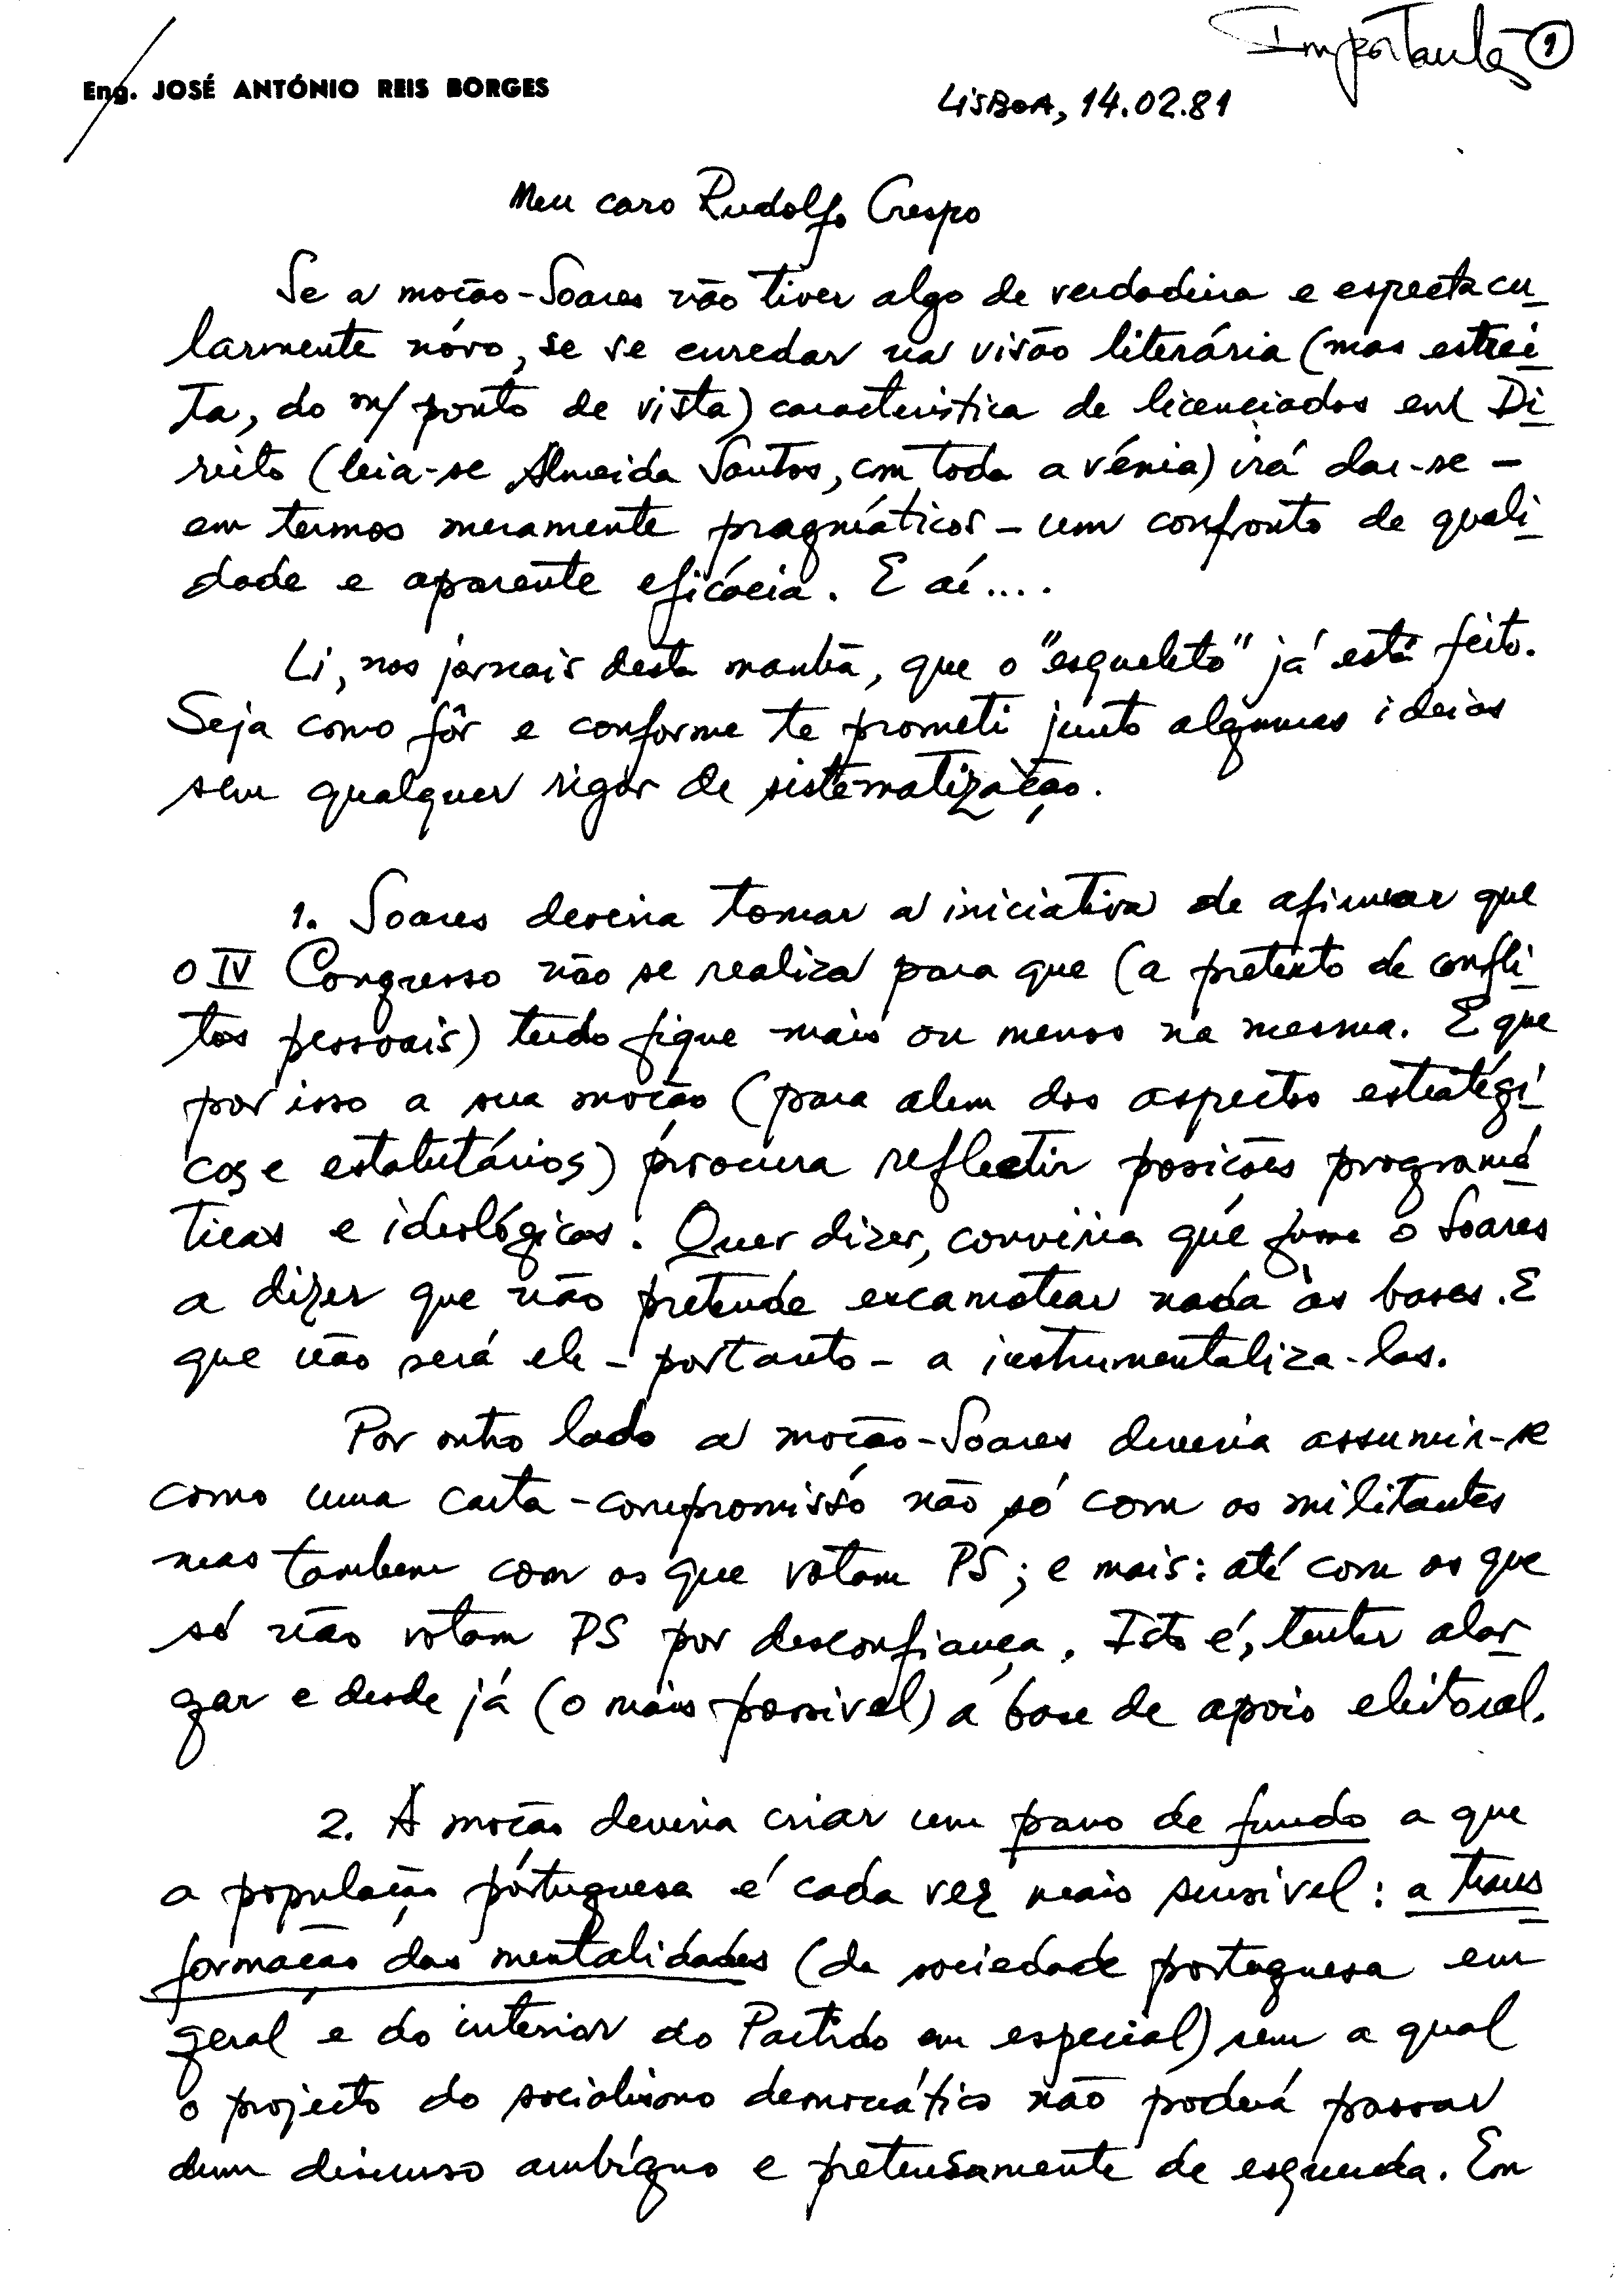 Importante 1
Eng. JOSÉ ANTÓNIO REIS BORGES
LISBOA, 14.02.81
Meu caro Rudolfo Crespo
Se a moção-Soares não tiver algo de verdadeira e espectacu
larmente nóvo, se se enredar na visão literária (mas estrei
ta, do m/ ponto de vista) característica de licenciados em Di
reito (leia-se Almeida Santos, com toda a vénia) irá dar-se –
em termos meramente pragmáticos – um confronto de quali
dade e aparente eficácia. E aí....
Li, nos jornais desta manhã, que o "esqueleto" já está feito.
Seja como fôr e conforme te prometi junto algumas ideias
sem qualquer rigor de sistematização.
1. Soares deveria tomar a iniciativa de afirmar que
o IV Congresso não se realiza para que (a pretexto de confli
tos pessoais) tudo fique mais ou menos na mesma. E que
por isso a sua moção (para alem dos aspectos estratégi
cos e estatutários) procura reflectir posições programá
ticas e ideológicas. Quer dizer, conviria que fosse o Soares
a dizer que não pretende escamotear nada às bases. E
que não será ele – portanto – a instrumentaliza-las.
Por outro lado a moção-Soares deveria assumir-se
como uma carta-compromisso não só com os militantes
mas tambem com os que votam PS; e mais: até com os que
só não votam PS por desconfiança. Isto é, tentar alar
gar e desde já (o mais possivel) a base de apoio eleitoral.
2. A moção deveria criar um pano de fundo a que
a população portuguesa é cada vez mais sensivel: a trans
formação das mentalidades (da sociedade portuguesa em
geral e do interior do Partido em especial) sem a qual
o projecto do socialismo democrático não poderá passar
dum discurso ambíguo e pretensamente de esquerda. Em